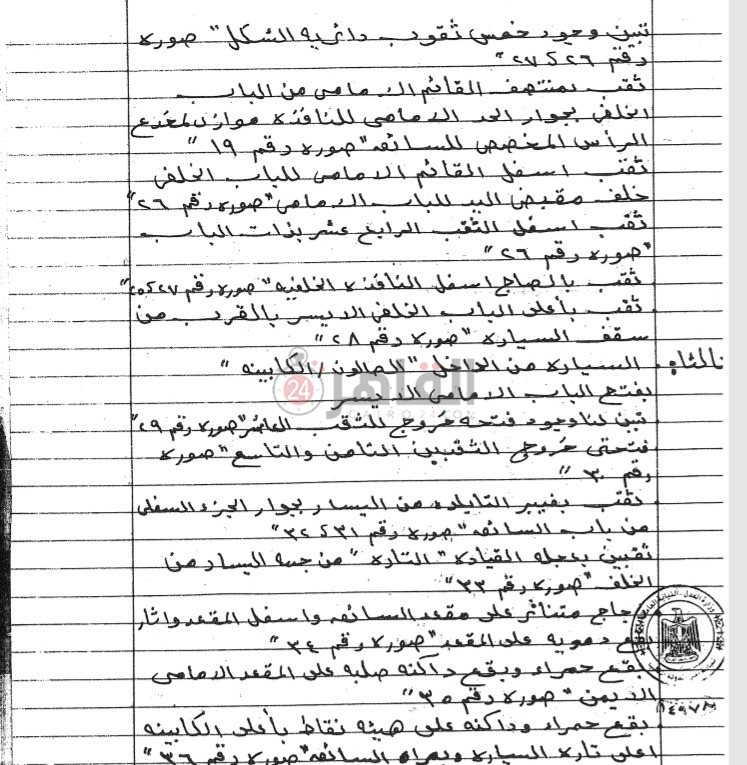 تبين وجود خمس ثقوب دائرية الشكل "صورة
رقم ٢٦، ٢٧"
ثقب بمنتصف القائم الامامى من الباب
الخلفى بجوار الحد الامامى للنافذة موازى لمخدع
الرأس المخصص للسائق "صورة رقم ١٩"
ثقب اسفل القائم الامامى للباب الخلفى
خلف مقبض اليد للباب الامامى "صورة رقم ٢٦"
ثقب اسفل الثقب الرابع عشر بذات الباب
"صورة رقم ٢٦"
ثقب بالصاج اسفل النافذة الخلفيه "صورة رقم ٢٧، ٢٥"
ثقب بأعلى الباب الخلفى الايسر بالقرب من
سقف السيارة "صورة رقم ٢٨"
السيارة من الداخل "الصالون / الكابينه"
القاهرة 24
CAIRO24.COM
بفتح الباب الامامى الايسر
تبين لنا وجود فتحه خروج للثقب العاشر "صورة رقم ٢٩"
فتحتى خروج الثقبين الثامن والتاسع "صورة
رقم ٣٠"
ثقب بفيبر التابلوه من اليسار بجوار الجزء السفلى
من باب السائق "صورة رقم ٣١، ٣٢"
ثقبين بعجله القيادة "التارة" من جهه اليسار من
الخلف "صورة رقم ٣٣"
زجاج متناثر على مقعد السائق واسفل المقعد واثار
بقع دمويه على المقعد "صورة رقم ٣٤"
بقع حمراء وبقع داكنه صلبه على المقعد الامامى
الايمن "صورة رقم ٣٥"
بقع حمراء وداكنه على هيئه نقاط بأعلى الكابينه
اعلى تارة السيارة ومراه السائق "صورة رقم ٣٦"